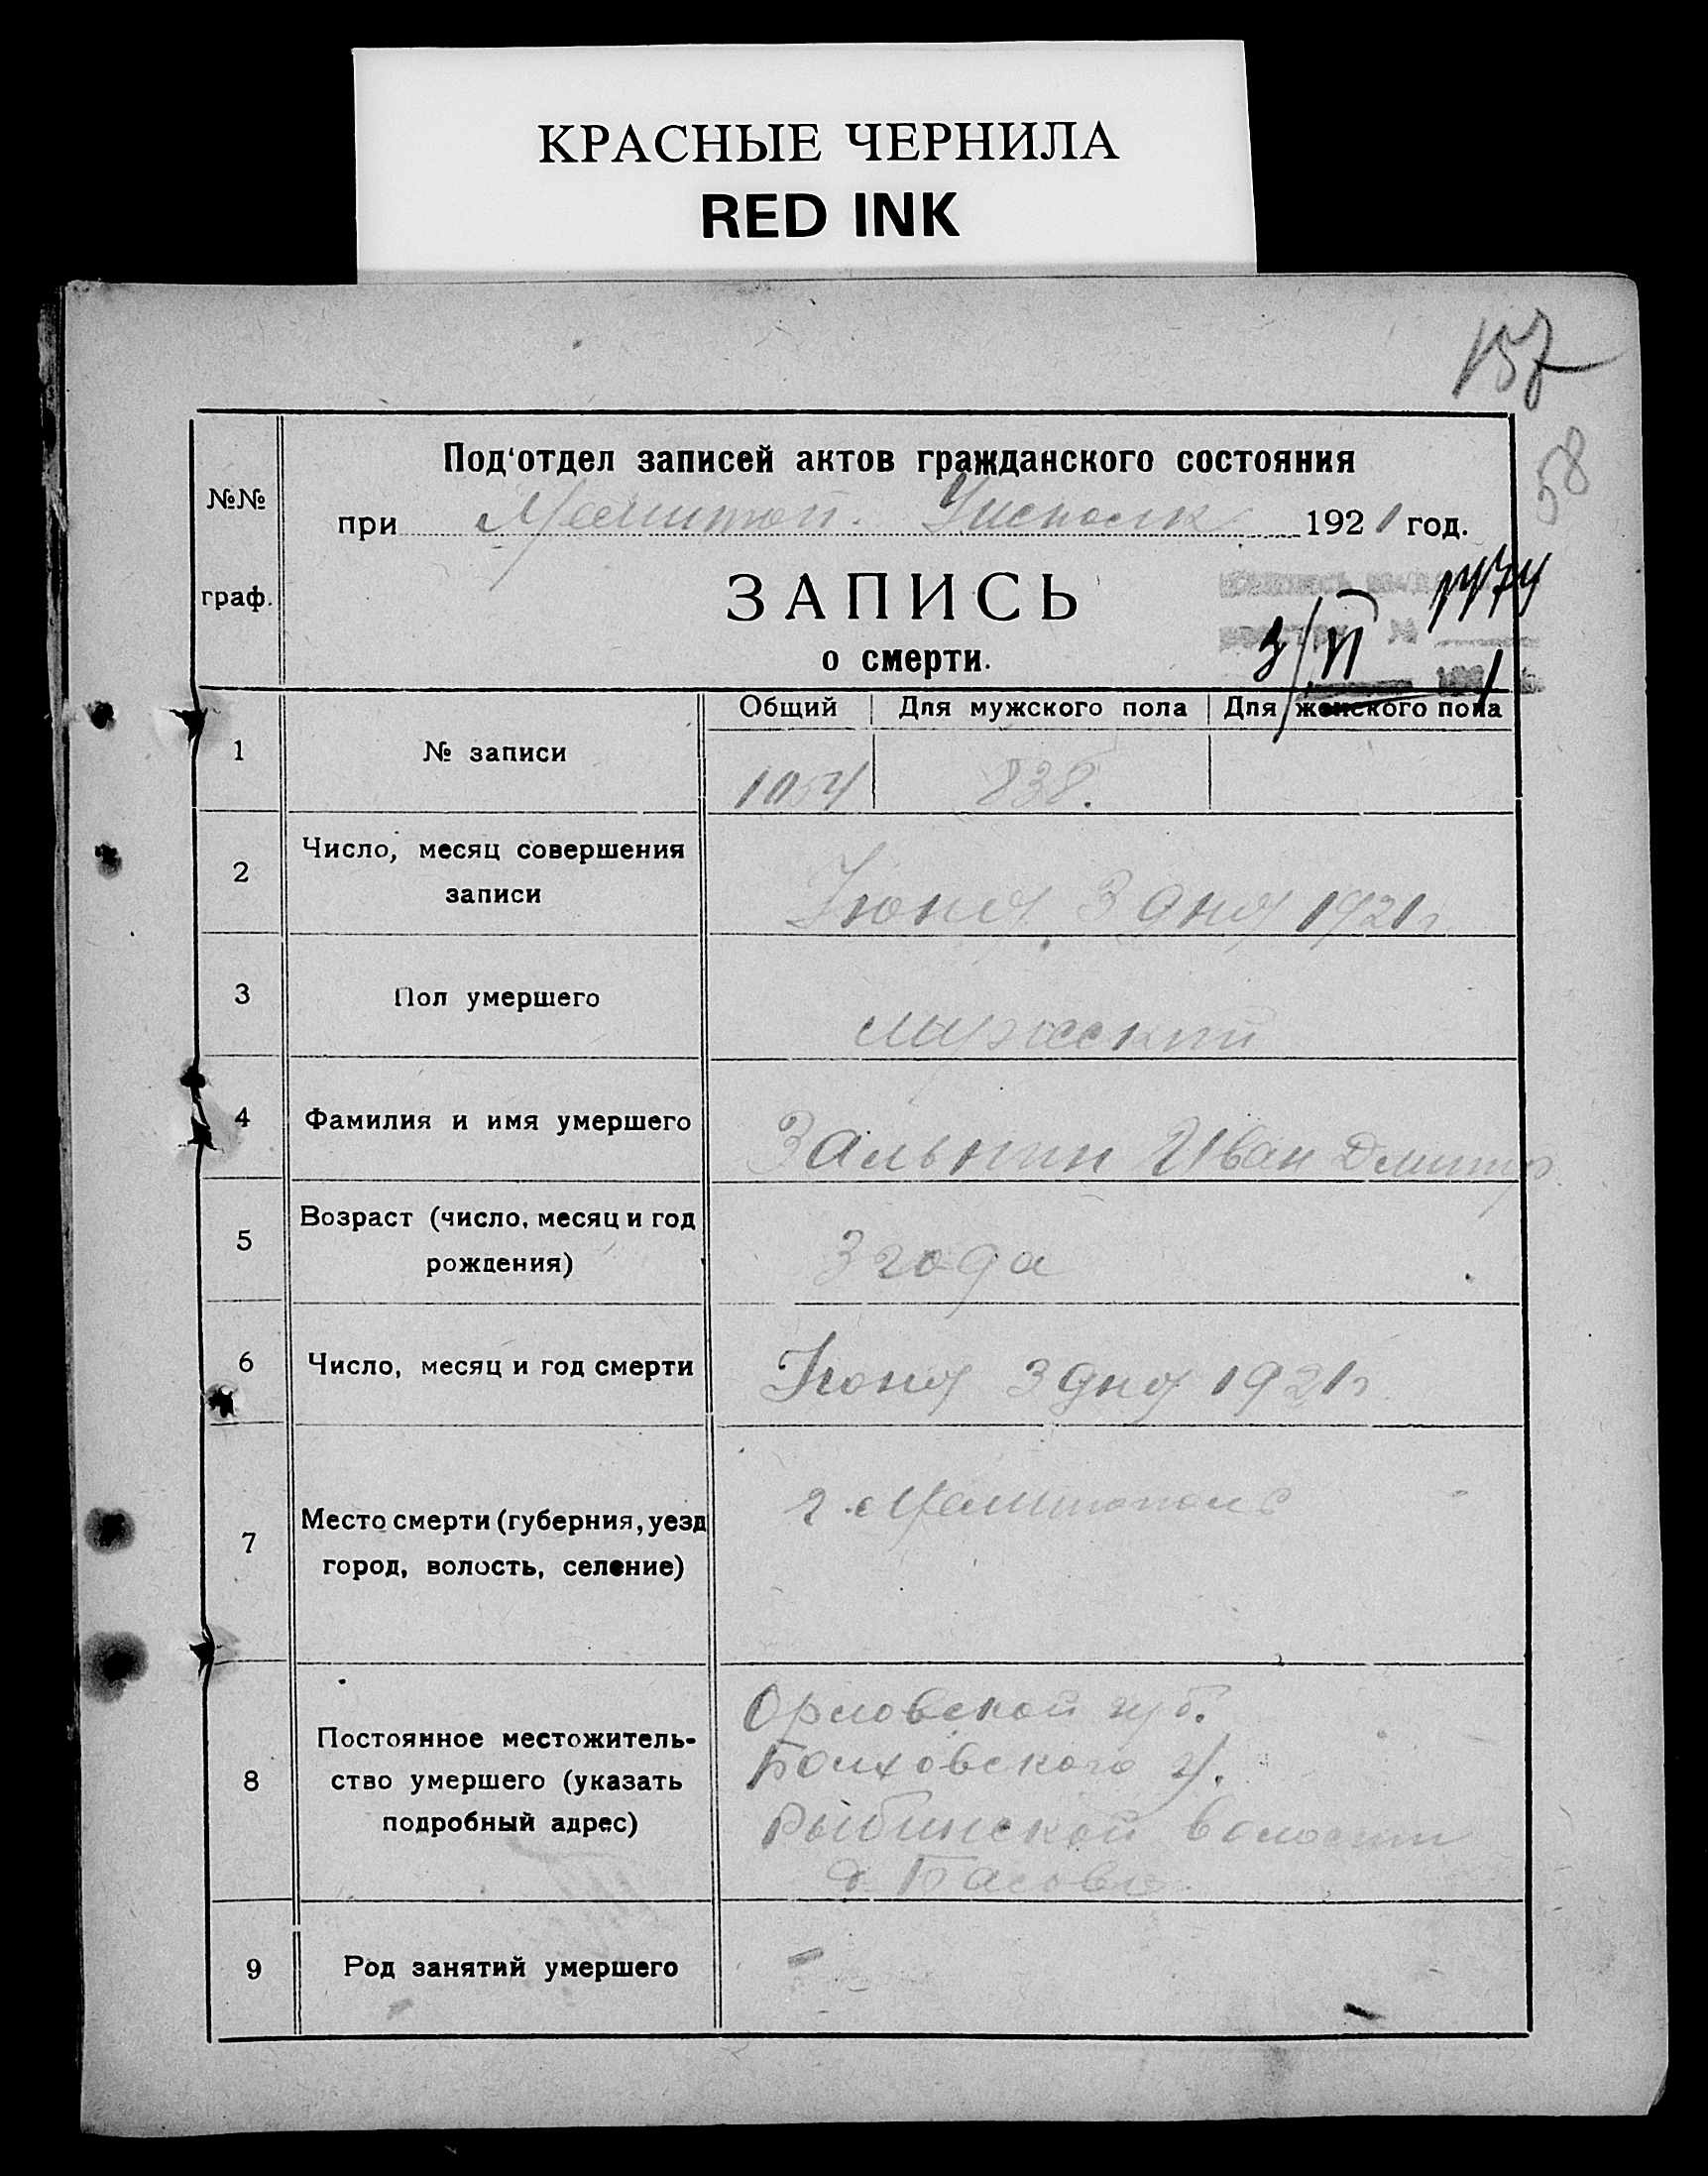 КРАСНЫЕ ЧЕРНИЛА
RED INK
157
58
№№ граф.
Под'отдел записей актов гражданского состояния
при Мелитоп. Исполк 1921 год.
ЗАПИСЬ
о смерти.
3/VI 1
Общий Для мужского пола Для женского пола
1 № записи 1054 838.
2 Число, месяц совершения
записи
Июня 3 дня 1921г
3 Пол умершего мужской
4 Фамилия и имя умершего Иван Дмитр.
5 Возраст (число, месяц и год
рождения)
3 года
6 Число, месяц и год смерти Июня 3 дня 1921г
7 Место смерти (губерния, уезд
город, волость, селение)
г. Мелитополь
8 Постоянное местожитель-
ство умершего (указать
подробный адрес)
Орловской губ.
Болховского у.
волости
9 Род занятий умершего —